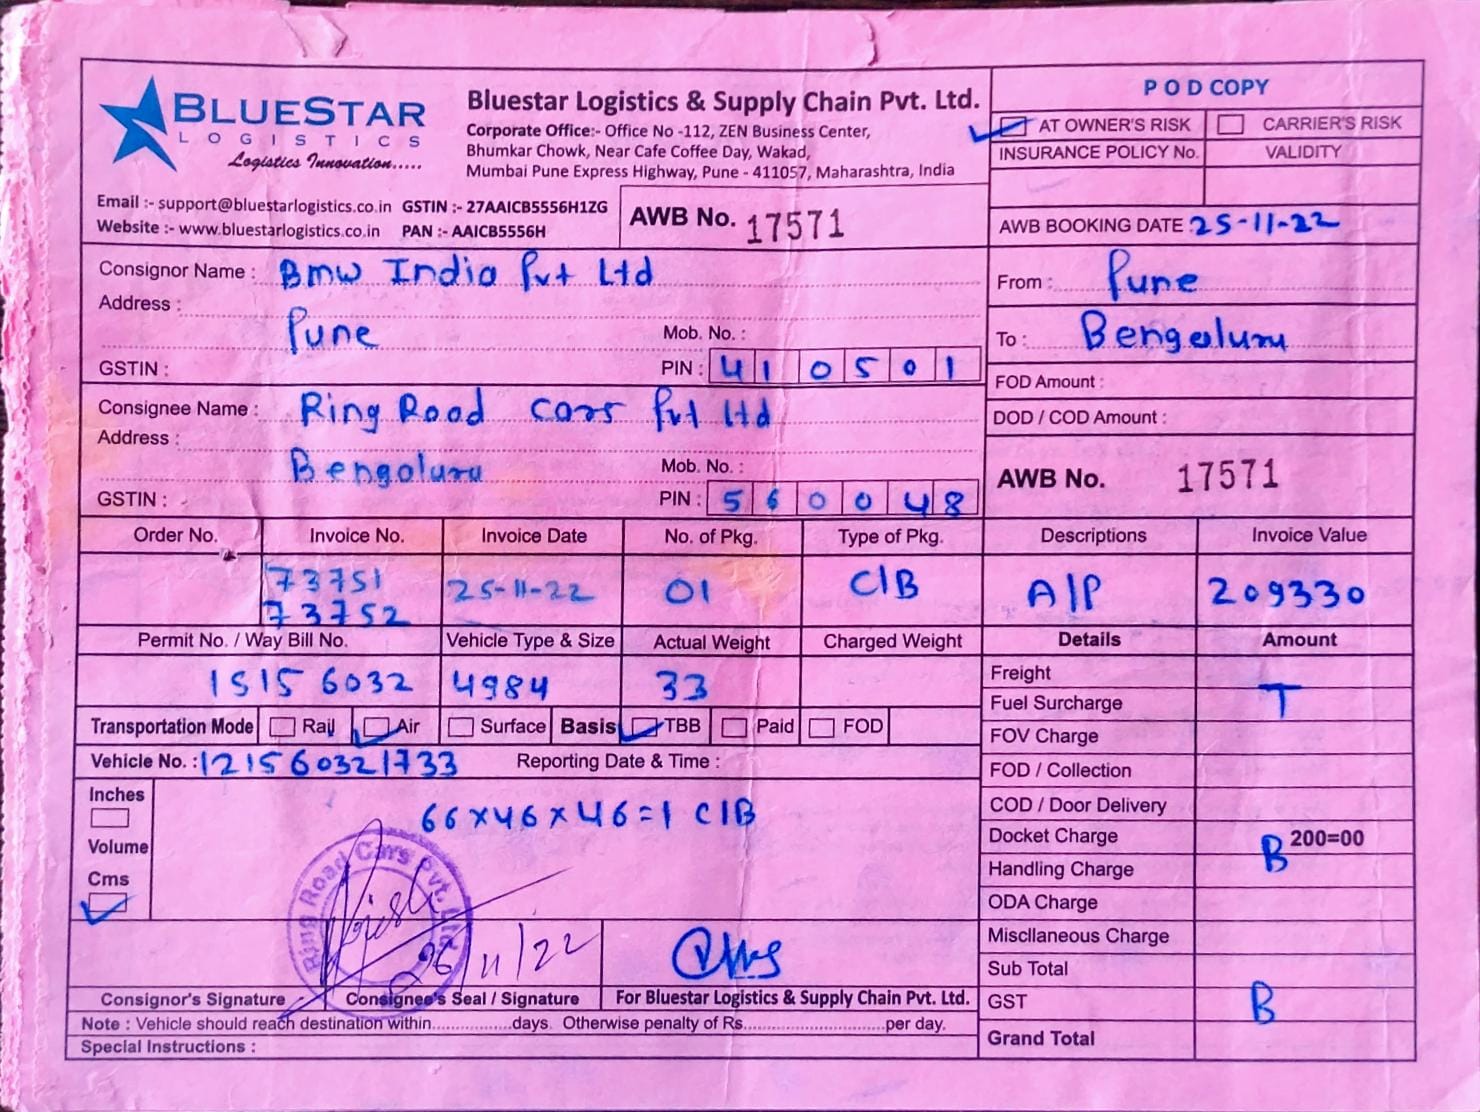 BLUESTAR
LOGISTICS
Logistics Innovation.....
Bluestar Logistics & Supply Chain Pvt. Ltd.
Corporate Office:- Office No -112, ZEN Business Center,
Bhumkar Chowk, Near Cafe Coffee Day, Wakad,
Mumbai Pune Express Highway, Pune - 411057, Maharashtra, India
POD COPY
AT OWNER'S RISK CARRIER'S RISK
INSURANCE POLICY No. VALIDITY
Email :- support@bluestarlogistics.co.in GSTIN :- 27AAICB5556H1ZG
Website :- www.bluestarlogistics.co.in PAN :- AAICB5556H
AWB No. 17571
AWB BOOKING DATE : 25-11-22
Consignor Name : Bmw India Pvt Ltd
Address :
Pune Mob. No. :
GSTIN : PIN : 410501
From : Pune
To : Bengaluru
FOD Amount :
DOD / COD Amount :
Consignee Name : Ring Road Cars Pvt Ltd
Address :
Bengaluru Mob. No. :
GSTIN : PIN : 560048
AWB No. 17571
Order No. Invoice No. Invoice Date No. of Pkg. Type of Pkg. Descriptions Invoice Value
73751 25-11-22 01 C/B A/P 209330
73752
Permit No. / Way Bill No. Vehicle Type & Size Actual Weight Charged Weight Details Amount
1515 6032 4984 33
Freight
Fuel Surcharge T
Transportation Mode Rail Air Surface Basis TBB Paid FOD
FOV Charge
Vehicle No. : 121560321733 Reporting Date & Time :
FOD / Collection
Inches
66x46x46=1 C/B
COD / Door Delivery
Docket Charge 200=00
Volume
B
Handling Charge
Cms
ODA Charge
Miscllaneous Charge
Ring Road Cars Pvt. Ltd.
26/11/22
Sub Total
GST B
Consignor's Signature Consignee's Seal / Signature For Bluestar Logistics & Supply Chain Pvt. Ltd.
Note : Vehicle should reach destination within..................days. Otherwise penalty of Rs...............................per day.
Grand Total
Special Instructions :